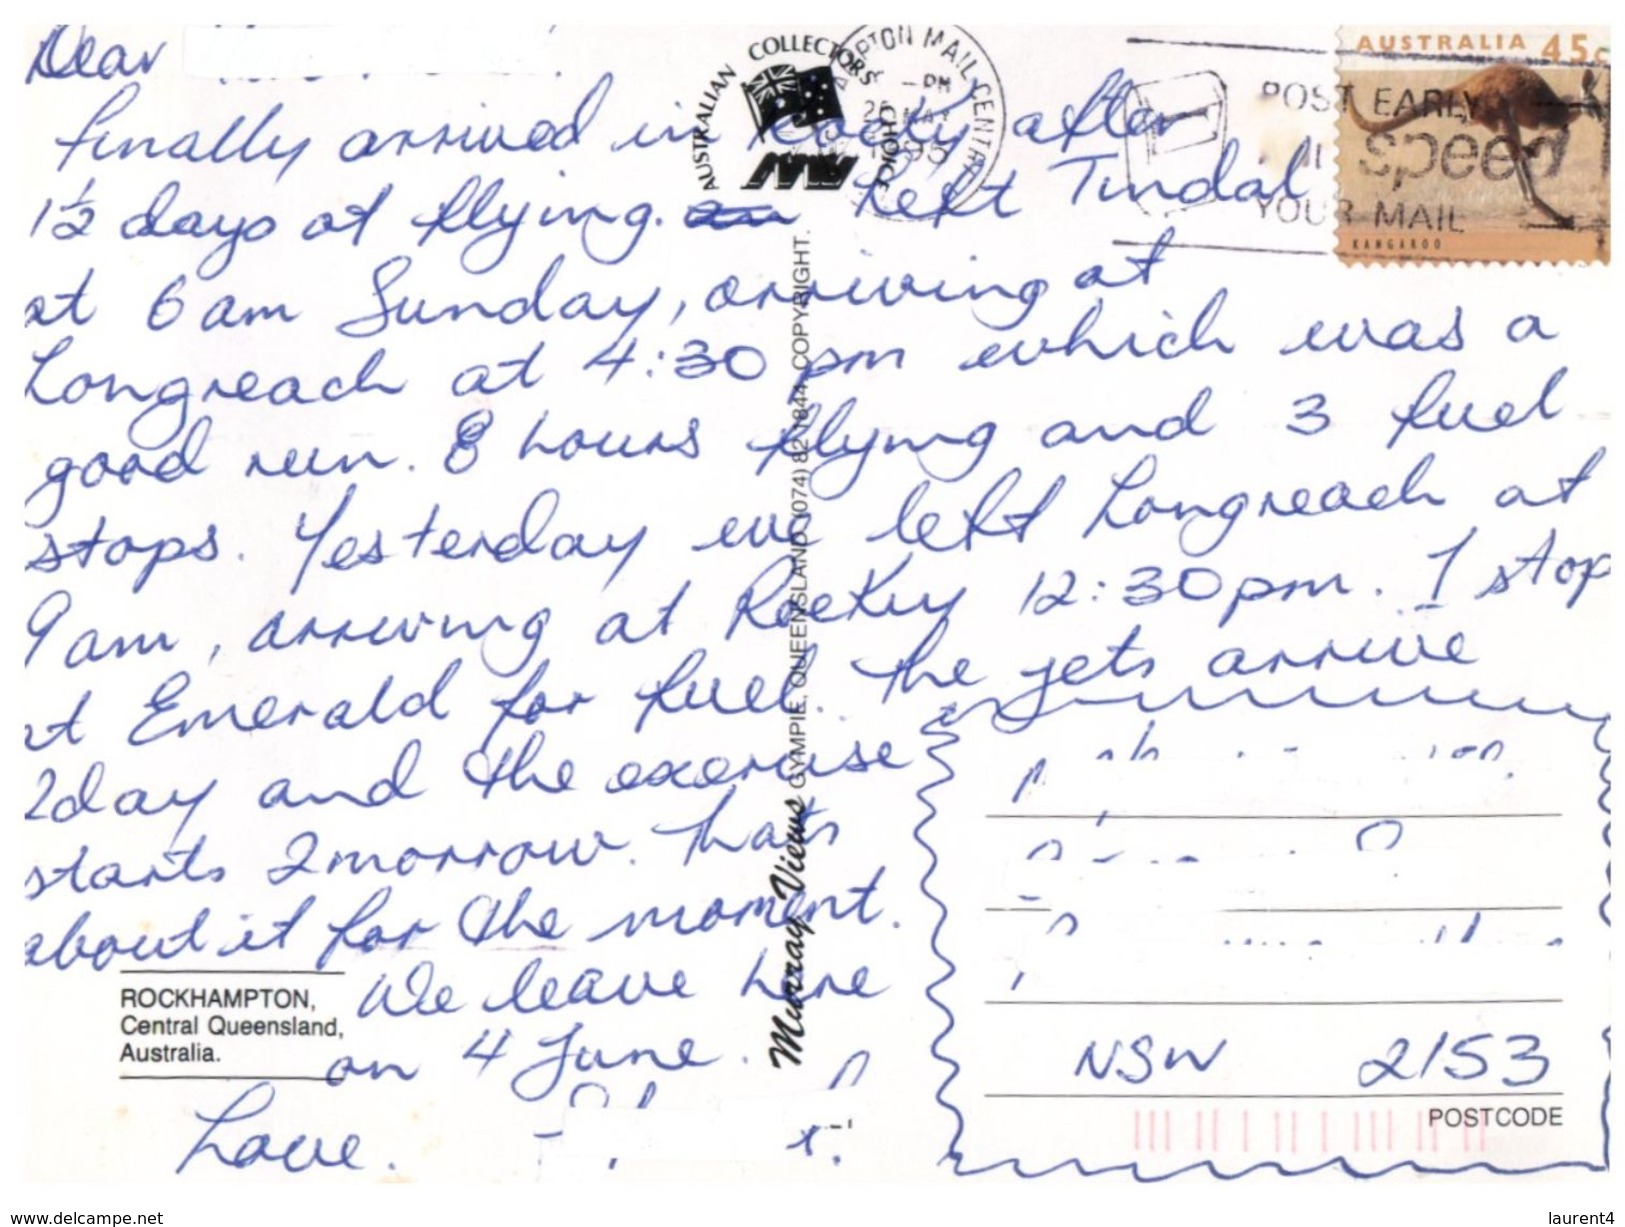 Dear
Finally arrived in Rocky after
1½ days of flying. Left Tindal
at 6am Sunday, arriving at
Longreach at 4:30pm which was a
good run. 8 hours flying and 3 fuel
stops. Yesterday we left Longreach at
9am, arriving at Rocky 12:30pm. 1 stop
at Emerald for fuel. The jets arrive
2day and the exercise
starts 2morrow. Thats
about it for the moment.
We leave here
on 4 June.
Love.
ROCKHAMPTON,
Central Queensland,
Australia.
AUSTRALIAN COLLECTORS CHOICE
Murray Views GYMPIE, QUEENSLAND (074) 82 1844 COPYRIGHT.
MAIL CENTRE
1995
POST EARLY
speed
YOUR MAIL
AUSTRALIA 45c
KANGAROO
NSW 2153
POSTCODE
www.delcampe.net
laurent4